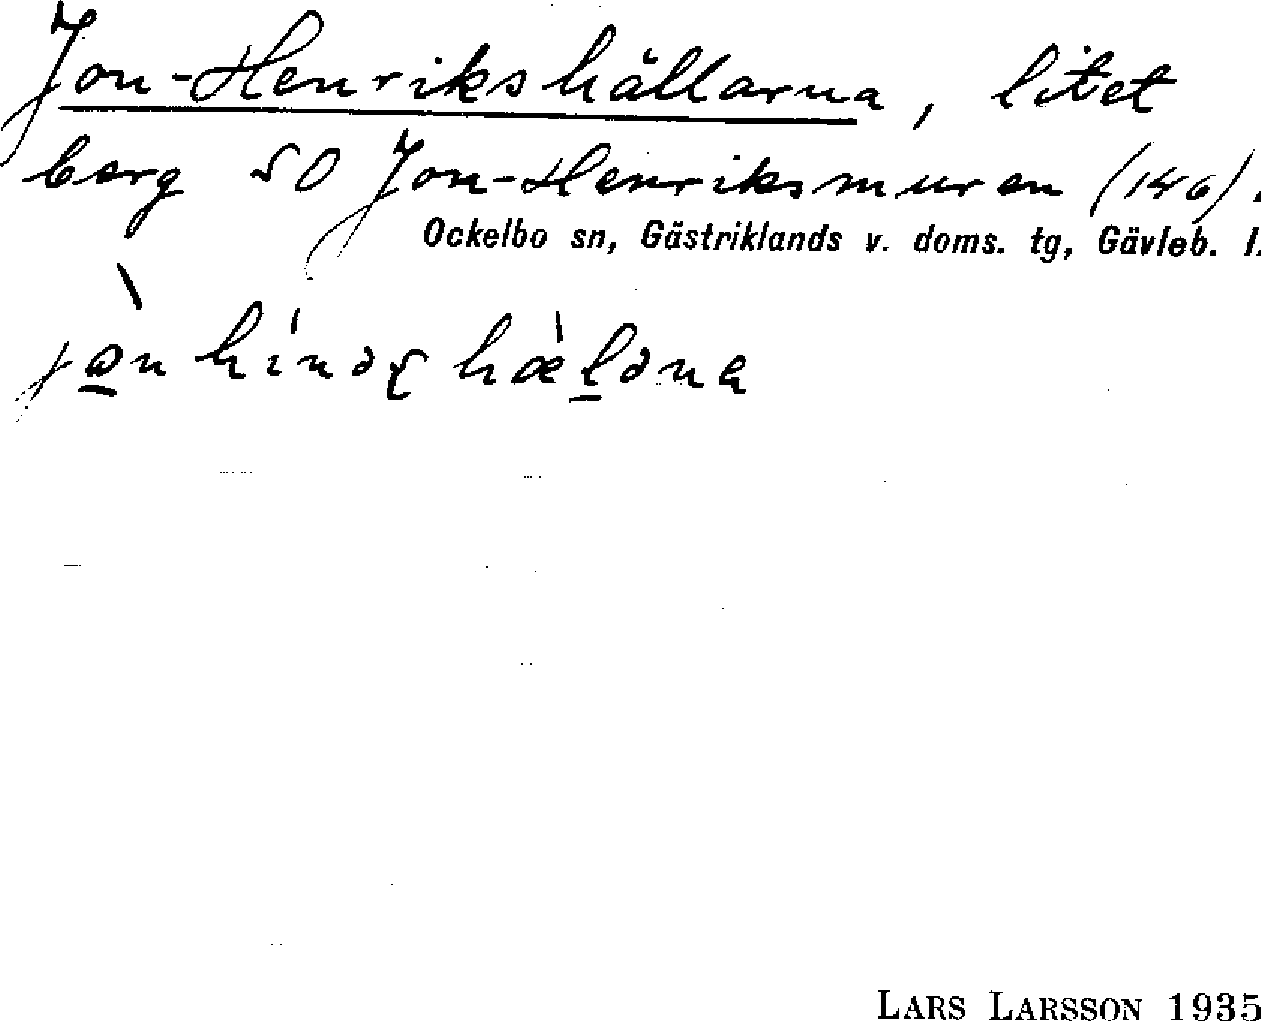 Jon-Henrikshällarna, litet
berg SO Jon-Henriksmuren (146).
Ockelbo sn, Gästriklands v. doms. tg, Gävleb. l.
LARS LARSSON 1935